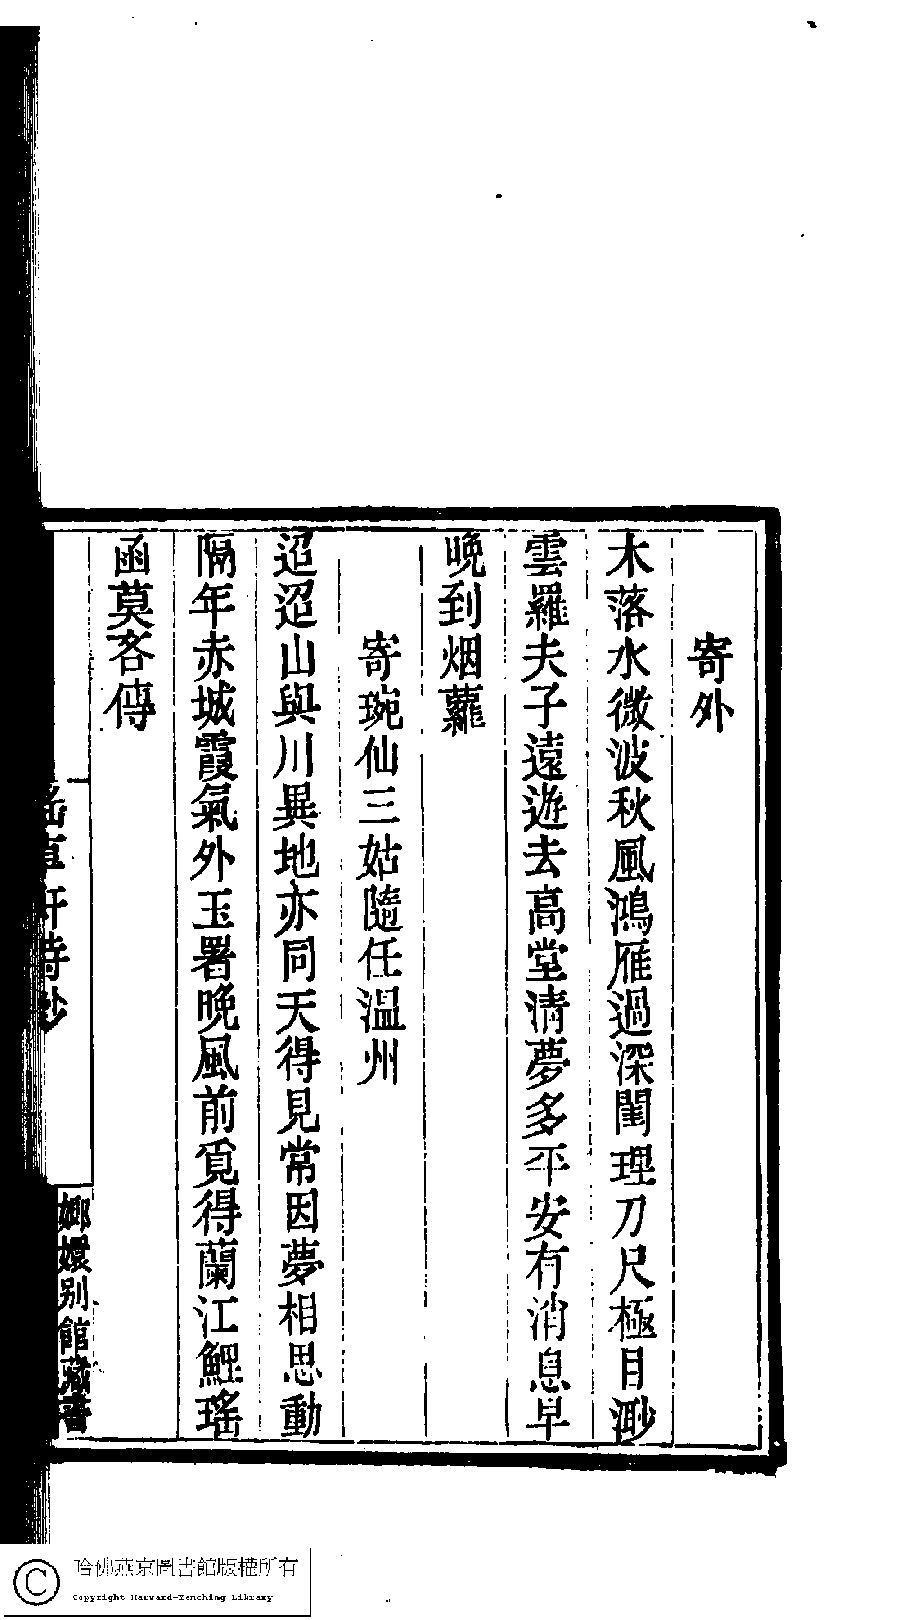 寄外
木落水微波秋風鴻雁過深閨理刀尺極目渺
雲羅夫子遠遊去高堂清夢多平安有消息早
晚到烟蘿
寄琬仙三姑隨任溫州
迢迢山與川異地亦同天得見常因夢相思動
隔年赤城霞氣外玉署晚風前覓得蘭江鯉瑤
函莫吝傳
瑤草軒詩鈔
嫏嬛別館藏書
哈佛燕京圖書館版權所有
Copyright Harvard-Yenching Library